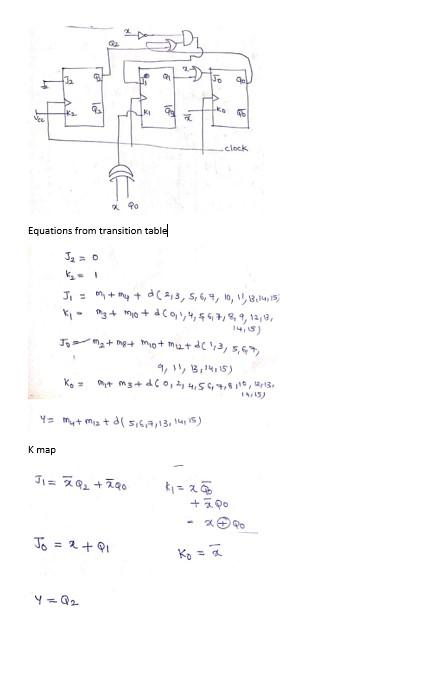 x
Q2
J2 Q2
K2 Q̅2
Vcc
J1 Q1
K1
x
J0 Q0
K0 Q̅0
x̅
clock
x Q0
Equations from transition table
J2 = 0
K2 = 1
J1 = m1 + m4 + d(2,3, 5,6,7, 10, 11,13,14,15)
K1 = m3 + m10 + d(0,1,4,5,6,7,8,9,12,13,
14,15)
J0 = m2 + m8 + m10 + m12 + d(1,3, 5,6,7,
9, 11, 13,14,15)
K0 = m1 + m3 + d(0, 2, 4,5,6,7,8,10, 12,13,
14,15)
Y = m4 + m12 + d(5,6,7,13,14,15)
K map
J1 = x̅Q2 + x̅Q0 K1 = xQ̅0
+ x̅Q0
= x⊕Q0
J0 = x + Q1 K0 = x̅
Y = Q2